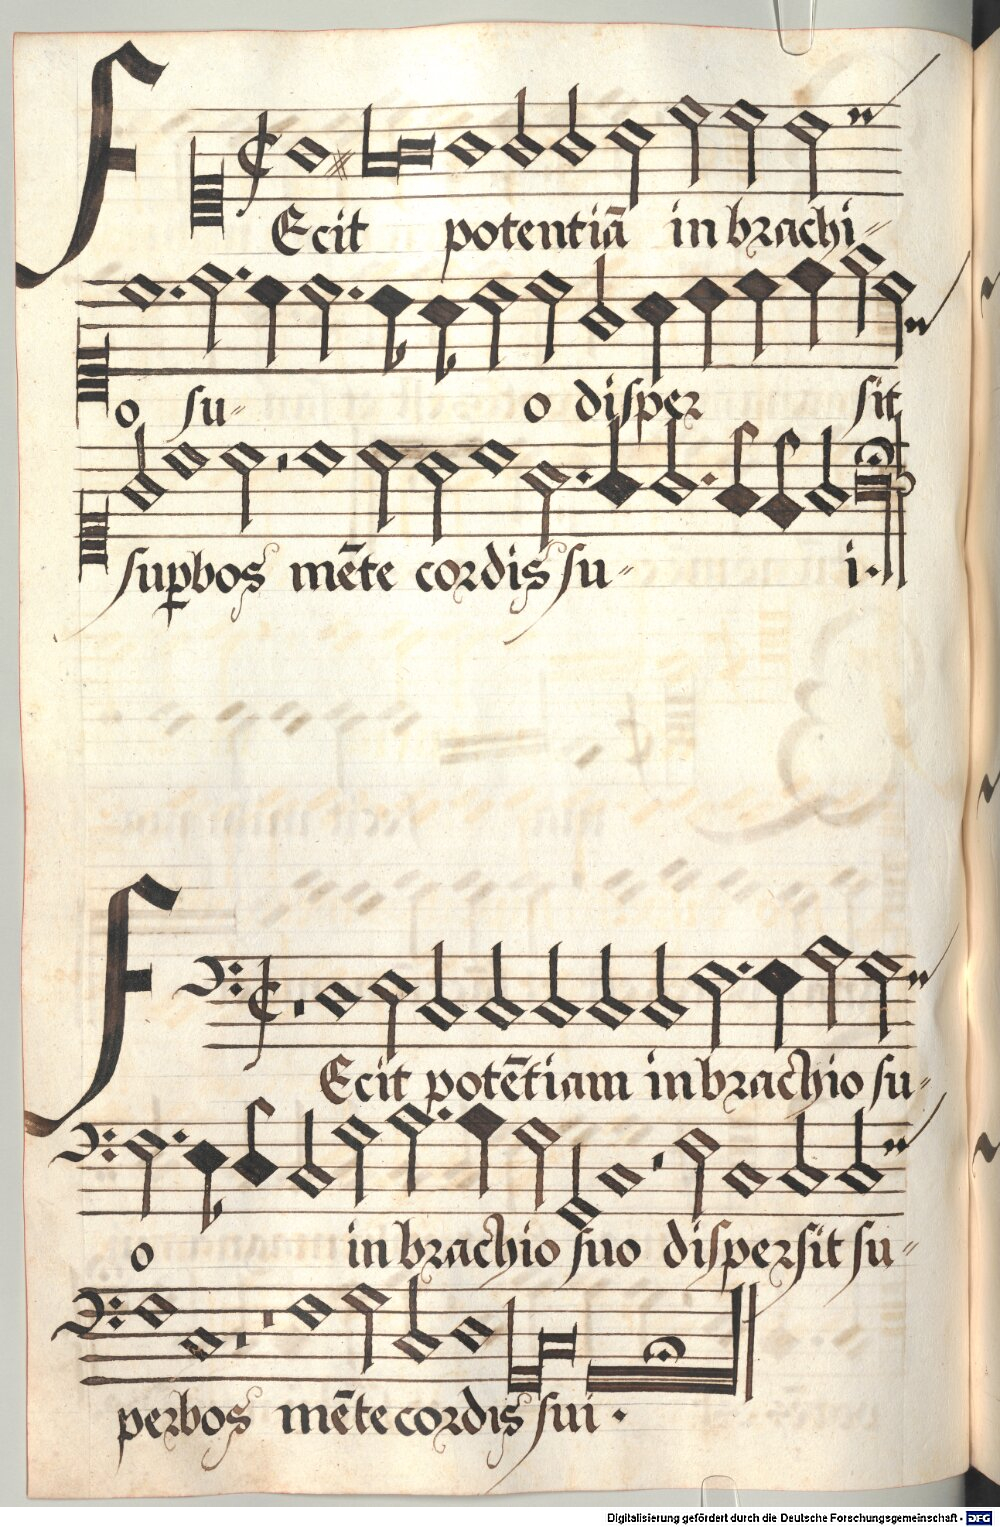 FEcit potentiā in brachi-
o su- o disper sit
supbos mēte cordis su- i.
FEcit potētiam in brachio su-
o in brachio suo dispersit su-
perbos mēte cordis sui.
Digitalisierung gefördert durch die Deutsche Forschungsgemeinschaft - DFG